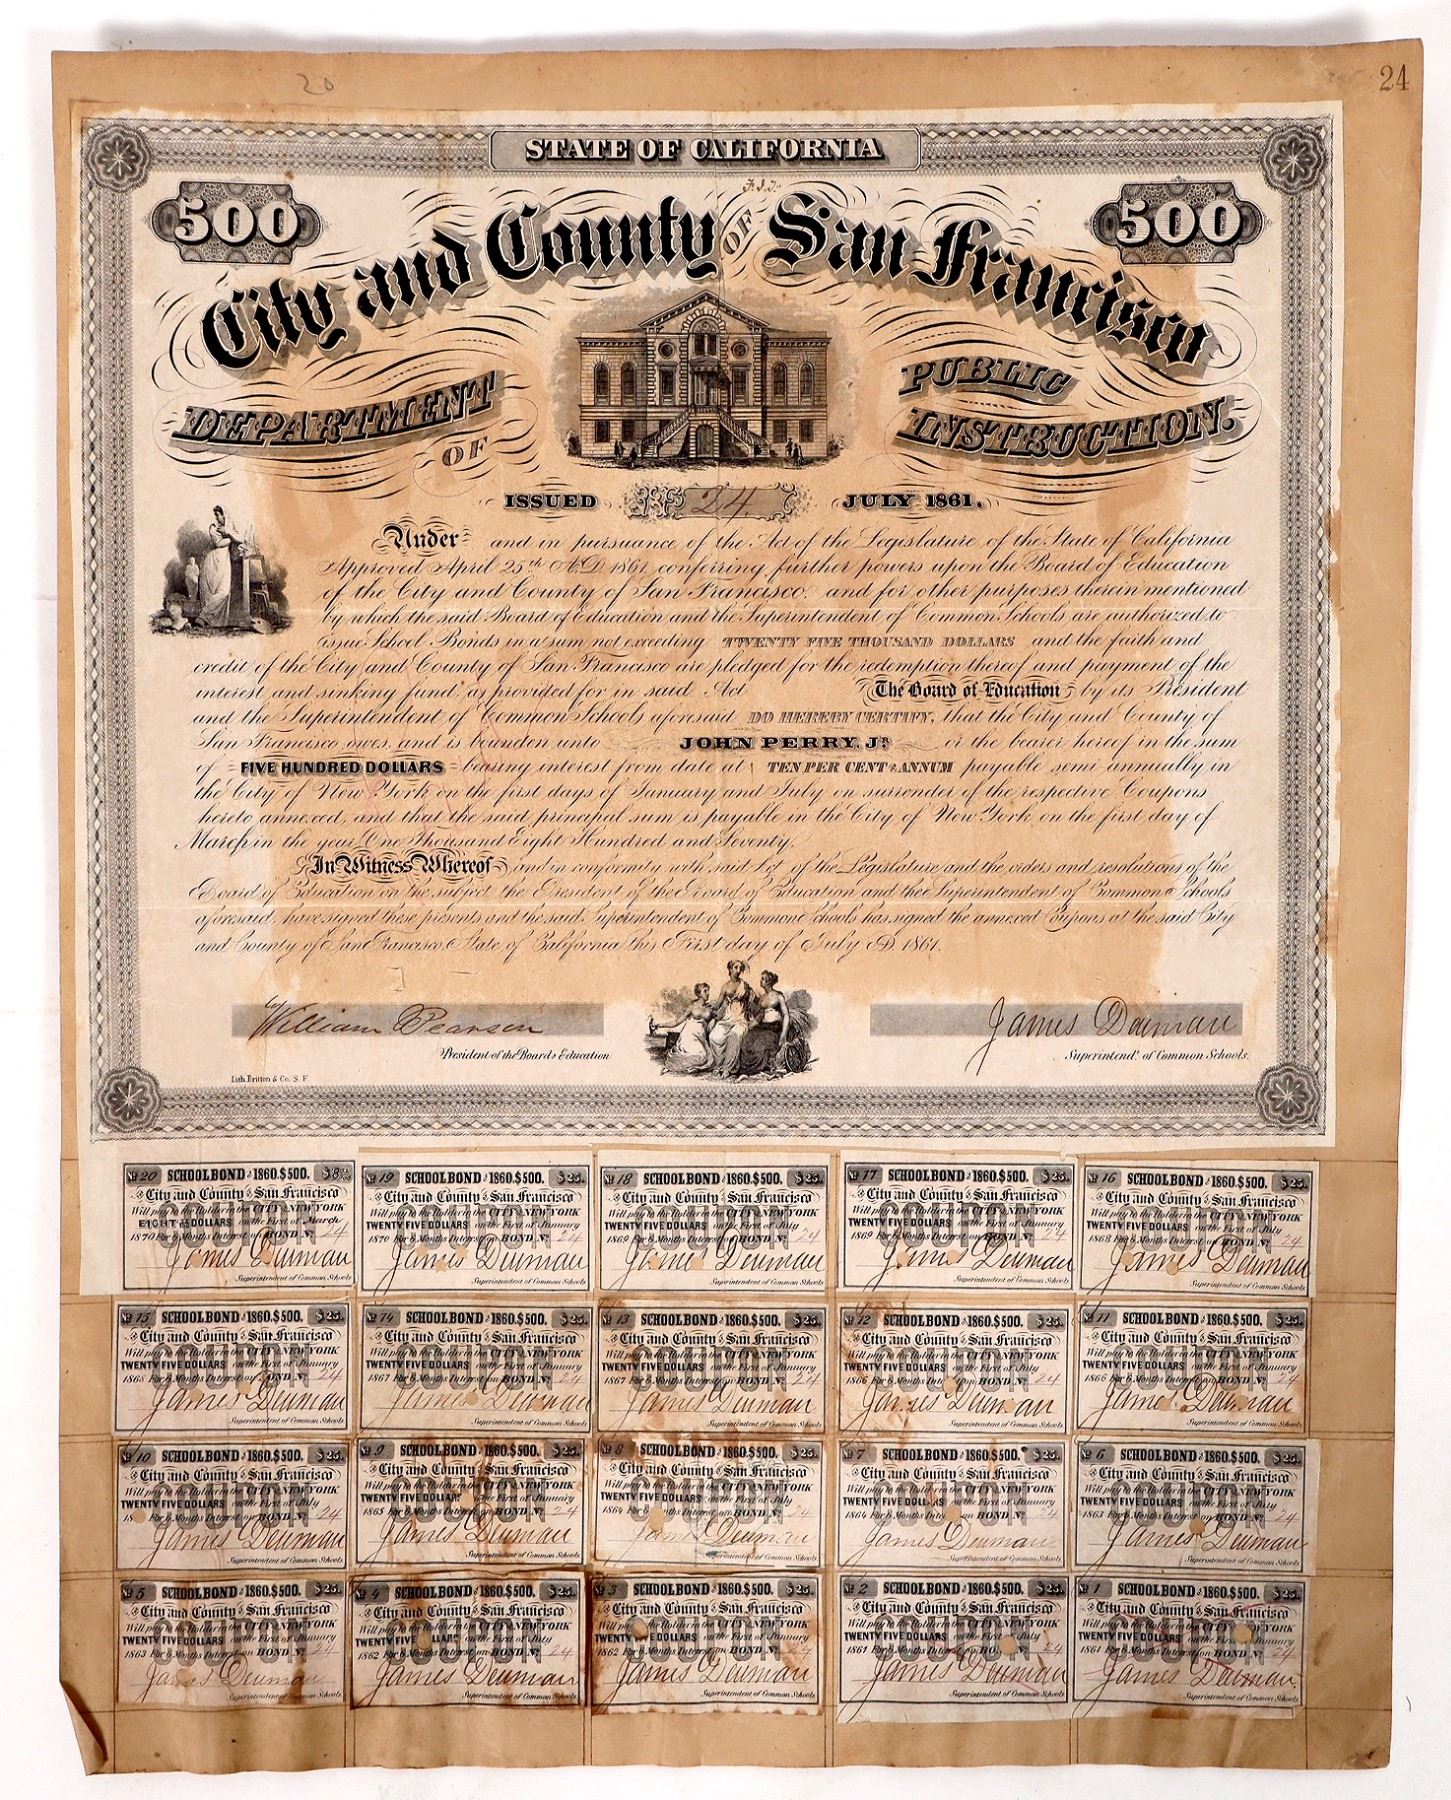 20
24
STATE OF CALIFORNIA
F.J.T.
500 500
City and County OF San Francisco
DEPARTMENT OF PUBLIC INSTRUCTION.
ISSUED No 24 JULY 1861.
Under and in pursuance of the Act of the Legislature of the State of California
Approved April 25th A.D. 1861, conferring further powers upon the Board of Education
of the City and County of San Francisco, and for other purposes therein mentioned
by which the said Board of Education and the Superintendent of Common Schools are authorized to
issue School Bonds in a sum not exceeding TWENTY FIVE THOUSAND DOLLARS and the faith and
credit of the City and County of San Francisco are pledged for the redemption thereof and payment of the
interest and sinking fund as provided for in said Act The Board of Education by its President
and the Superintendent of Common Schools aforesaid DO HEREBY CERTIFY, that the City and County of
San Francisco owes, and is bounden unto JOHN PERRY, Jr. or the bearer hereof in the sum
of FIVE HUNDRED DOLLARS bearing interest from date at TEN PER CENT ANNUM payable semi annually in
the City of New York on the first days of January and July on surrender of the respective Coupons
hereto annexed, and that the said principal sum is payable in the City of New York on the first day of
March in the year One Thousand Eight Hundred and Seventy.
In Witness Whereof and in conformity with said Act of the Legislature and the orders and resolutions of the
Board of Education on the subject the President of the Board of Education and the Superintendent of Common Schools
aforesaid, have signed these presents and the said Superintendent of Common Schools has signed the annexed Cupons at the said City
and County of San Francisco, State of California this First day of July AD 1861.
William Pearson James Denman
President of the Board of Education Superintend.t of Common Schools.
Lith. Britton & Co. S. F.
No 20 SCHOOL BOND of 1860. $500. $8
City and County of San Francisco
Will pay to the Holder in the CITY of NEW YORK
EIGHT DOLLARS on the First of March
1870 Months Interest on BOND No 24
COUPON
James Denman
Superintendent of Common Schools
No 19 SCHOOL BOND of 1860. $500. $25.
City and County of San Francisco
Will pay to the Holder in the CITY of NEW YORK
TWENTY FIVE DOLLARS on the First of January
1870 For 6 Months Interest on BOND No 24
COUPON
James Denman
Superintendent of Common Schools
No 18 SCHOOL BOND of 1860. $500. $25.
City and County of San Francisco
Will pay to the Holder in the CITY of NEW YORK
TWENTY FIVE DOLLARS on the First of July
1869 For 6 Months Interest on BOND No 24
COUPON
James Denman
Superintendent of Common Schools
No 17 SCHOOL BOND of 1860. $500. $25.
City and County of San Francisco
Will pay to the Holder in the CITY of NEW YORK
TWENTY FIVE DOLLARS on the First of January
1869 For 6 Months Interest on BOND No 24
COUPON
James Denman
Superintendent of Common Schools
No 16 SCHOOL BOND of 1860. $500. $25.
City and County of San Francisco
Will pay to the Holder in the CITY of NEW YORK
TWENTY FIVE DOLLARS on the First of July
1868 For 6 Months Interest on BOND No 24
COUPON
James Denman
Superintendent of Common Schools
No 15 SCHOOL BOND of 1860. $500. $25.
City and County of San Francisco
Will pay to the Holder in the CITY of NEW YORK
TWENTY FIVE DOLLARS on the First of January
1868 For 6 Months Interest on BOND No 24
COUPON
James Denman
Superintendent of Common Schools
No 14 SCHOOL BOND of 1860. $500. $25.
City and County of San Francisco
Will pay to the Holder in the CITY of NEW YORK
TWENTY FIVE DOLLARS on the First of January
1867 For 6 Months Interest on BOND No 24
COUPON
James Denman
Superintendent of Common Schools
No 13 SCHOOL BOND of 1860. $500. $25.
City and County of San Francisco
Will pay to the Holder in the CITY of NEW YORK
TWENTY FIVE DOLLARS on the First of January
1867 For 6 Months Interest on BOND No 24
COUPON
James Denman
Superintendent of Common Schools
No 12 SCHOOL BOND of 1860. $500. $25.
City and County of San Francisco
Will pay to the Holder in the CITY of NEW YORK
TWENTY FIVE DOLLARS on the First of
1866 For 6 Months Interest on BOND No 24
COUPON
James Denman
Superintendent of Common Schools
No 11 SCHOOL BOND of 1860. $500. $25.
City and County of San Francisco
Will pay to the Holder in the CITY of NEW YORK
TWENTY FIVE DOLLARS on the First of January
1866 For 6 Months Interest on BOND No 24
COUPON
James Denman
Superintendent of Common Schools
No 10 SCHOOL BOND of 1860. $500. $25.
City and County of San Francisco
Will pay to the Holder in the CITY of NEW YORK
TWENTY FIVE DOLLARS on the First of July
18 For 6 Months Interest on BOND No 24
COUPON
James Denman
Superintendent of Common Schools
No 9 SCHOOL BOND of 1860. $500. $25.
City and County of San Francisco
Will pay to the Holder in the CITY of NEW YORK
TWENTY FIVE DOLLARS on the First of January
1865 For 6 Months Interest on BOND No 24
COUPON
James Denman
Superintendent of Common Schools
No 8 SCHOOL BOND of 1860. $500. $25.
City and County of San Francisco
Will pay to the Holder in the CITY of NEW YORK
TWENTY FIVE DOLLARS on the First of July
1864 For 6 Months Interest on BOND No 24
COUPON
James Denman
Superintendent of Common Schools
No 7 SCHOOL BOND of 1860. $500. $25.
City and County of San Francisco
Will pay to the Holder in the CITY of NEW YORK
TWENTY FIVE DOLLARS on the First of January
1864 For 6 Months Interest on BOND No 24
COUPON
James Denman
Superintendent of Common Schools
No 6 SCHOOL BOND of 1860. $500. $25.
City and County of San Francisco
Will pay to the Holder in the CITY of NEW YORK
TWENTY FIVE DOLLARS on the First of July
1863 For 6 Months Interest on BOND No 24
COUPON
James Denman
Superintendent of Common Schools
No 5 SCHOOL BOND of 1860. $500. $25.
City and County of San Francisco
Will pay to the Holder in the CITY of NEW YORK
TWENTY FIVE DOLLARS on the First of January
1863 For 6 Months Interest on BOND No 24
COUPON
James Denman
Superintendent of Common Schools
No 4 SCHOOL BOND of 1860. $500. $25.
City and County of San Francisco
Will pay to the Holder in the CITY of NEW YORK
TWENTY FIVE DOLLARS on the First of July
1862 For 6 Months Interest on BOND No 24
COUPON
James Denman
Superintendent of Common Schools
No 3 SCHOOL BOND of 1860. $500. $25.
City and County of San Francisco
Will pay to the Holder in the CITY of NEW YORK
TWENTY FIVE DOLLARS on the First of January
1862 For 6 Months Interest on BOND No 24
COUPON
James Denman
Superintendent of Common Schools
No 2 SCHOOL BOND of 1860. $500. $25.
City and County of San Francisco
Will pay to the Holder in the CITY of NEW YORK
TWENTY FIVE DOLLARS on the First of July
1861 For 6 Months Interest on BOND No 24
COUPON
James Denman
Superintendent of Common Schools
No 1 SCHOOL BOND of 1860. $500. $25.
City and County of San Francisco
Will pay to the Holder in the CITY of NEW YORK
TWENTY FIVE DOLLARS on the First of January
1861 For 6 Months Interest on BOND No 24
COUPON
James Denman
Superintendent of Common Schools